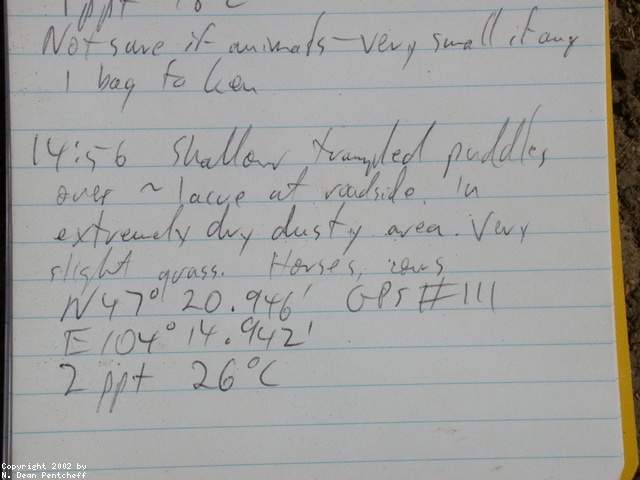 1 ppt 18°C
Not sure if animals - very small if any
1 bag to Ken
14:56 Shallow, trampled puddles
over ~ 1 acre at roadside. In
extremely dry dusty area. Very
slight grass. Horses, cows
N47° 20.946' GPS #111
E104° 14.942'
2 ppt 26°C
Copyright 2002 by
N. Dean Pentcheff